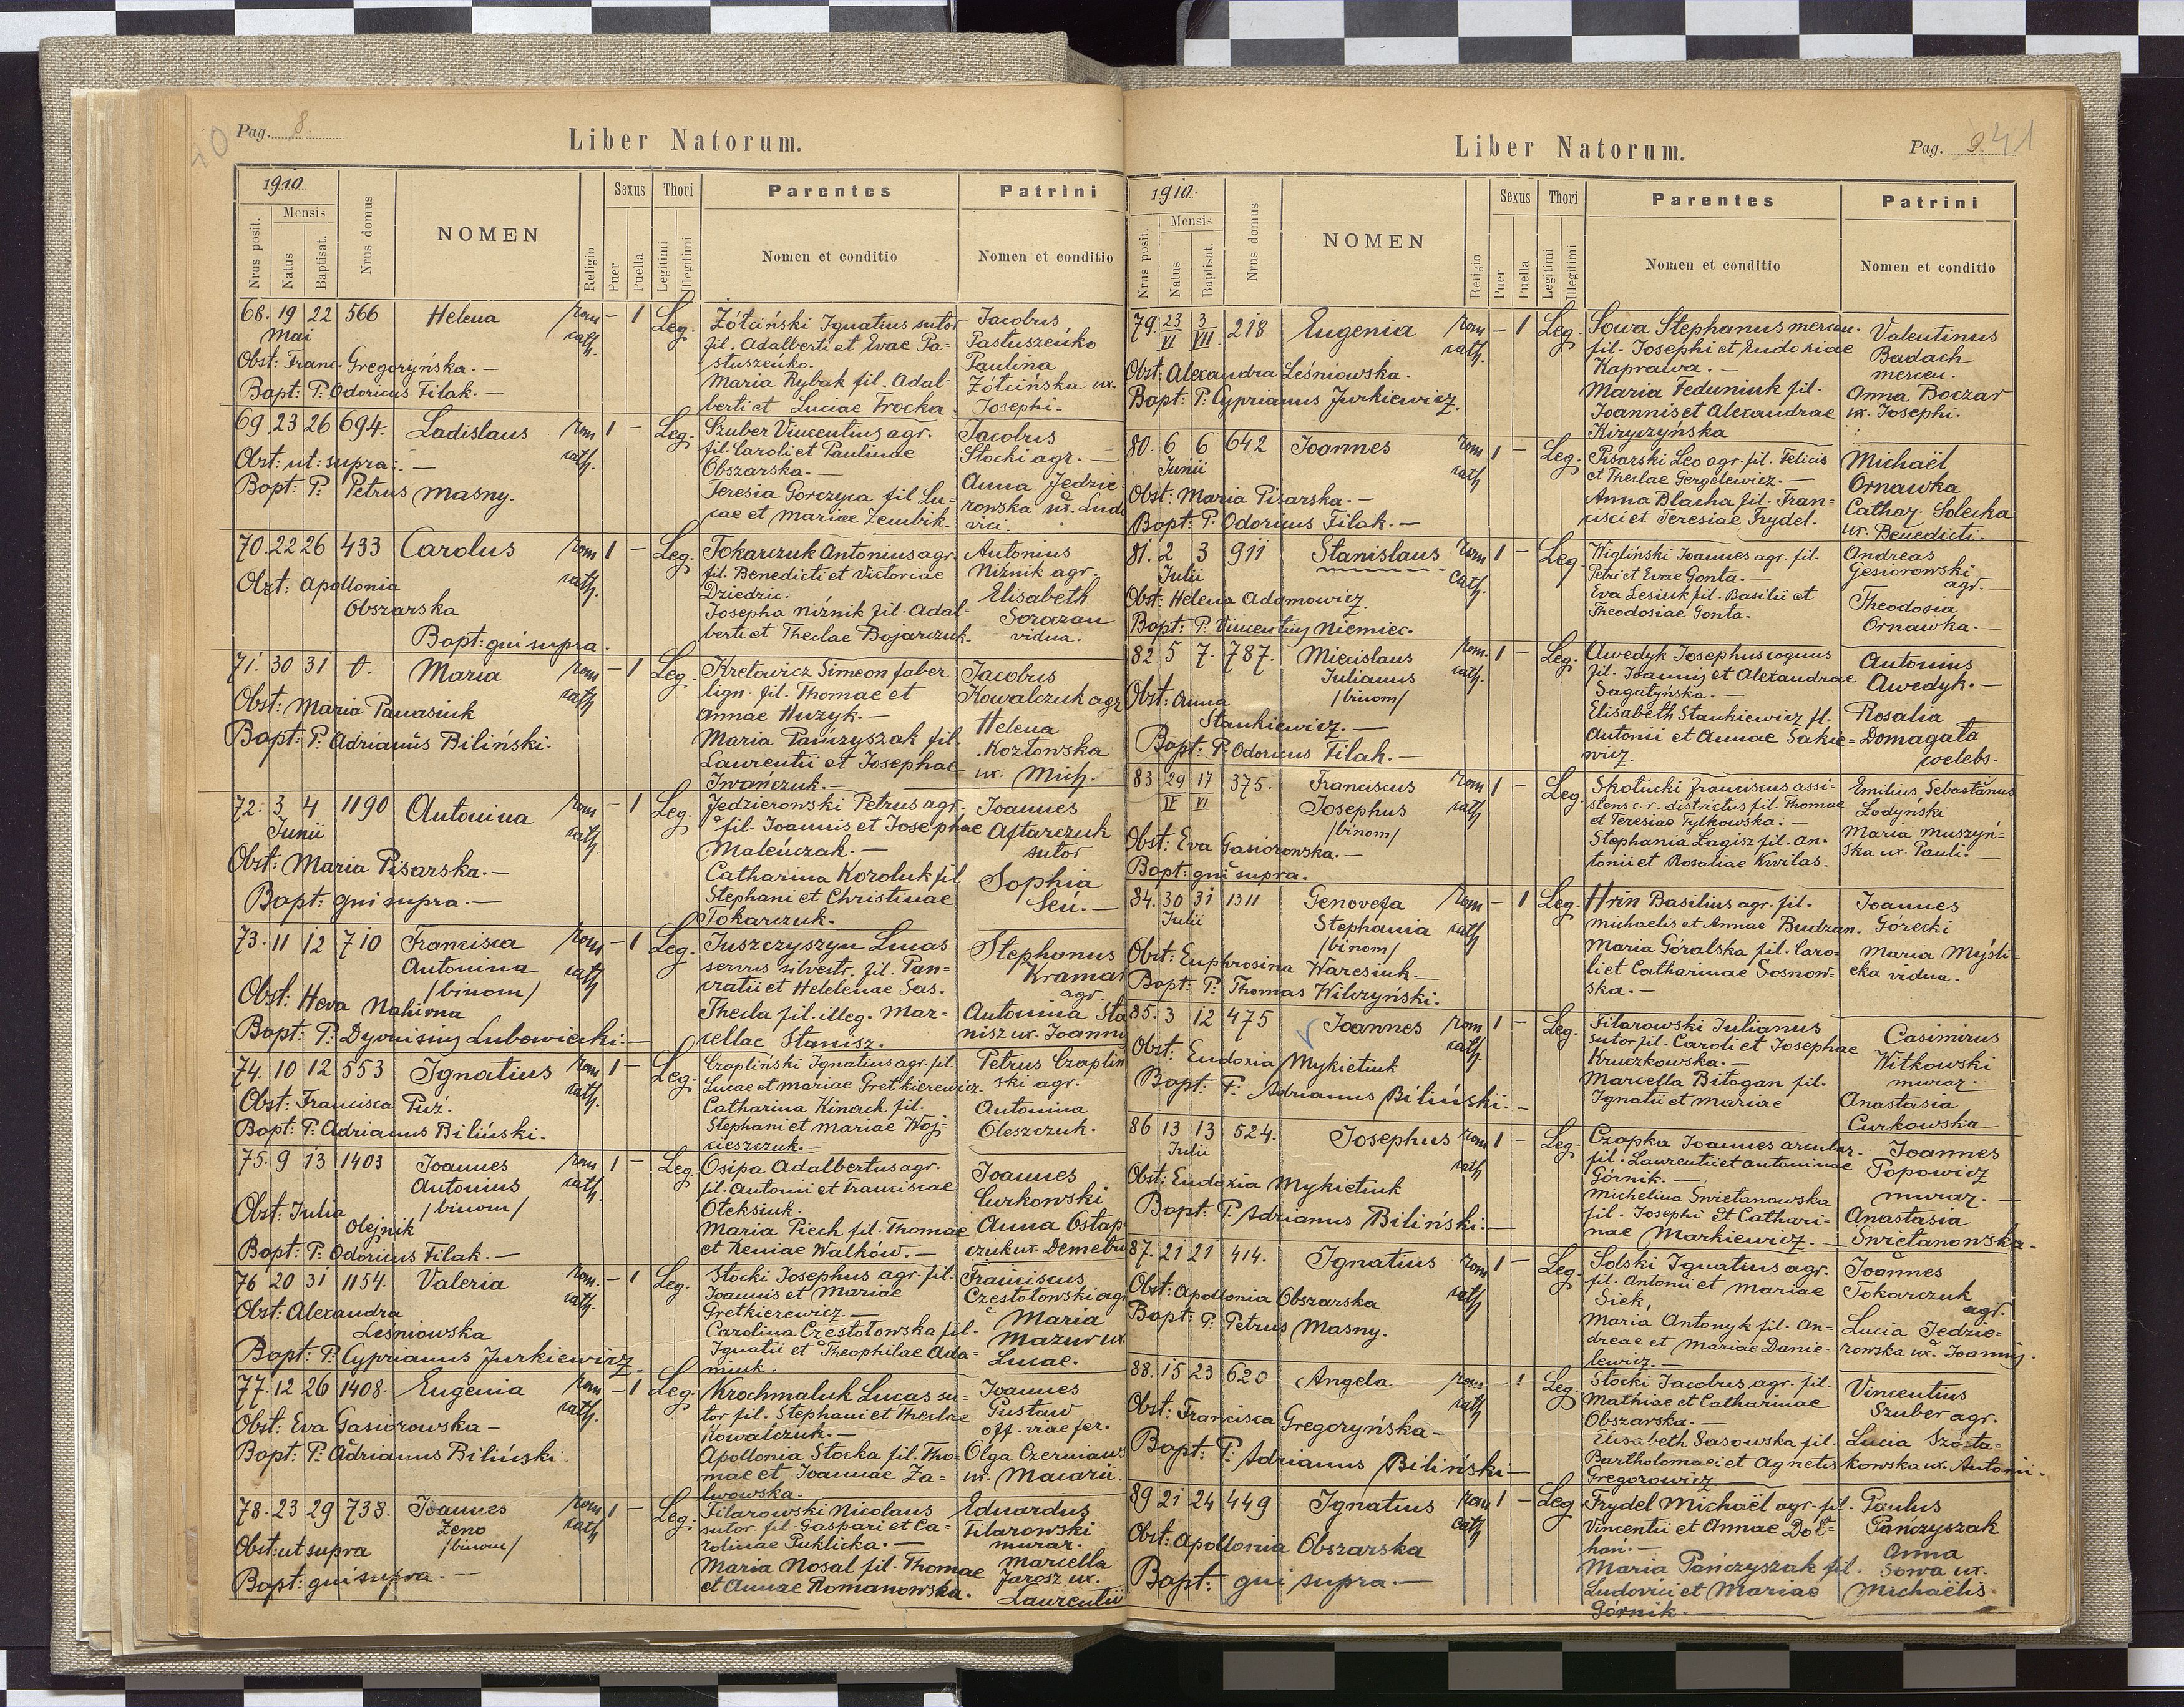 Pag. 8.
Liber Natorum.
1910
Nrus posit.
Mensis
Natus
Baptisat.
Nrus domus
NOMEN
Religio
Sexus
Puer
Puella
Thori
Legitimi
Illegitimi
Parentes
Nomen et conditio
Patrini
Nomen et conditio
68. 19 22 566 Helena rom - 1 Leg. Żółciński Ignatius sutor Jacobus
Mai cath. fil. Adalberti et Evae Pa= Pastuszeńko
Obst: Franc. Gregoryńska.- stuszeńko. Paulina
Bapt: P. Odoricus Filak.- Maria Rybak fil. Adal- Żółcińska ux.
berti et Luciae Trocka. Josephi.
69. 23 26 694. Ladislaus rom 1 - Leg. Szuber Vincentius agr. Jacobus
cath. fil. Caroli et Paulinae Stocki agr.-
Obst: ut supra:.- Obszarska.- Anna Jedzie-
Bapt: P. Petrus Masny. Teresia Gorczyca fil Lu- rowska ux. Ludo
cae et Mariae Zembik. vici.
70. 22 26 433 Carolus rom 1 - Leg. Tokarczuk Antonius agr. Antonius
Obst: Apollonia cath. fil. Benedicti et Victoriae Niżnik agr.
Obszarska Dziedzic. Elisabeth
Josepha Niżnik fil. Adal-
Bapt: qui supra. berti et Theclae Bojarczuk. vidua.
71. 30 31 Maria rom - 1 Leg. Kretowicz Simeon faber Jacobus
Obst: Maria Panasiuk cath lign. fil. Thomae et Kowalczuk agr
Bapt: P. Adrianus Biliński. Annae Huzyk.- Helena
Maria Pańczyszak fil. Kozłowska
Laurentii et Josephae ux. Mich.
Iwańczuk.-
72. 3 4 1190 Antonina rom - 1 Leg. Jedzierowski Petrus agr. Joannes
Junii cath. fil. Joannis et Josephae Aftarczuk
Obst: Maria Pisarska.- Maleńczak.- sutor
Bapt: qui supra.- Catharina Koroluk fil Sophia
Stephani et Christinae Señ.-
Tokarczuk.
73. 11 12 710 Francisca rom - 1 Leg. Juszczyszyn Lucas Stephanus
Antonina cath servus silvestr. fil. Pan= Kramar
/binom/ cratii et Helelenae Sas. agr.
Obst: Heva Nahirna Thecla fil. illeg. Mar= Antonina Sta
Bapt: P. Dyonisius Lubowiecki:- cellae Stanisz. nisz ux. Joannis
74. 10 12 553 Ignatius rom 1 - Leg. Czapliński Ignatius agr. fil. Petrus Czaplin
Obst: Francisca Puż. cath. Lucae et Mariae Gretkierewicz. ski agr.
Bapt: P. Adrianus Biliński. Catharina Kinach fil. Antonina
Stephani et Mariae Woj- Oleszczuk.
cieszczuk.-
75. 9 13 1403 Joannes rom 1 - Leg. Osipa Adalbertus agr. Joannes
Antonius cath. fil. Antonii et Franciscae Curkowski
Obst: Julia /binom/ Oleksiuk. Anna Ostap
Olejnik Maria Piech fil. Thomae czuk ux. Demetrii
Bapt: P. Odoricus Filak.- et Xeniae Walków.-
76 20 31 1154. Valeria rom. - 1 Leg. Stocki Josephus agr. fil. Franciscus
Obst: Alexandra cath. Joannis et Mariae Czestołowski agr
Leśniowska Gretkierewicz.- Maria
Carolina Czestołowska fil. Mazur ux
Bapt: P. Cyprianus Jurkiewicz Ignatii et Theophilae Ada= Lucae.
miuk.
77. 12 26 1408. Eugenia rom - 1 Leg. Krochmaluk Lucas su= Joannes
Obst: Eva Gasiorowska - cath. tor fil. Stephani et Theclae Gustaw
Bapt: P. Adrianus Biliński. Kowalczuk.- off. viae fer.
Apollonia Stocka fil. Tho= Olga Czerniaws
mae et Joannae Za- ux. Macarii.
lwowska.
78. 23 29 738. Joannes rom 1 - Leg. Filarowski Nicolaus Eduardus
Zeno cath sutor. fil Gaspari et Ca- Filarowski
Obst: ut supra /binom/ rolinae Puklicka.- murar.
Bapt: qui supra.- Maria Nosal fil. Thomae Marcella
et Annae Romanowska. Jarosz ux.
Laurentii
Liber Natorum.
Pag. 9. 41
1910.
Nrus posit.
Mensis
Natus
Baptisat.
Nrus domus
NOMEN
Religio
Sexus
Puer
Puella
Thori
Legitimi
Illegitimi
Parentes
Nomen et conditio
Patrini
Nomen et conditio
79. 23/VI 3/VII 218 Eugenia rom - 1 Leg. Sowa Stephanus mercen. Valentinus
cath. fil. Josephi et Eudoxiae Badach
Obst: Alexandra Leśniowska. Kapralva.- mercen.
Bapt: P. Cyprianus Jurkiewicz. Maria Feduniuk fil. Anna Boczar
Joannis et Alexandrae ux. Josephi.
Kiryczyńska
80. 6 6 642 Joannes rom 1 - Leg. Pisarski Leo agr. fil. Felicis Michaël
Junii cath et Theclae Gergelewicz.- Ornawka
Obst: Maria Pisarska.- Anna Blacha fil. Fran= Cathar. Solecka
Bapt: P. Odoricus Filak.- cisci et Teresiae Frydel. ux. Benedicti.
81. 2 3 911 Stanislaus rom 1 - Leg. Wigliński Joannes agr. fil. Andreas
Julii cath. Petri et Evae Gonta.- Gesiorowski
Obst: Helena Adamowicz. Eva Lesiuk fil. Basilii et agr.-
Bapt: P. Vincentius Niemiec. Theodosiae Gonta. Theodosia
Ornawka.-
82 5 7. 787. Miecislaus rom. 1 - Leg. Awedyk Josephus coquus Antonius
Julianus cath. fil. Joannis et Alexandrae Awedyk.-
Obst: Anna /binom/ Sagatyńska.- Rosalia
Stankiewicz.- Elisabeth Stankiewicz fil. Domagała
Bapt: P. Odoricus Filak.- Antonii et Annae Sakie= coelebs.
wicz.
83 29/IV 17/VI 375. Franciscus rom 1 - Leg. Skołucki Franciscus assi= Emilius Sebastianus
Josephus cath stens c. r. districtus fil. Thomae Lodyński
/binom/ et Teresiae Tylkowska.- Maria Muszyń=
Obst: Eva Gasiorowska.- Stephania Lagisz fil. An= ska ux. Pauli.-
Bapt: qui supra. tonii et Rosaliae Kwilas.
84. 30 31 1311 Genovefa rom - 1 Leg. Hrin Basilius agr. fil. Joannes
Julii Stephania cath Michaelis et Annae Budzan. Górecki
/binom/ Maria Góralska fil. Caro= Maria Myśli=
Obst: Euphrosina Waresiuk.- li et Catharinae Sosnow= cka vidua.
Bapt: P. Thomas Wilczyński. ska.-
85. 3 12 475 Joannes rom 1 - Leg. Filarowski Julianus Casimirus
Obst: Eudoxia Mykietiuk cath. sutor fil. Caroli et Josephae Witkowski
Kruczkowska.- murar.
Bapt: P. Adrianus Biliński.- Marcella Bitogan fil. Anastasia
Ignatii et Mariae Curkowska
86 13 13 524. Josephus rom 1 - Leg. Czapka Joannes arcular. Joannes
Julii cath fil. Laurentii et Antoninae Popowicz
Obst: Eudoxia Mykietiuk Górnik.- murar.-
Bapt: P. Adrianus Biliński:- Michelina Świetanowska Anastasia
fil. Josephi et Cathari= Świetanowska.
nae Markiewicz.-
87. 21 21 414. Ignatius rom 1 - Leg. Solski Ignatius agr. Joannes
Obst: Apollonia Obszarska cath fil. Antonii et Mariae Tokarczuk
Bapt: P. Petrus Masny. Siek, agr.
Maria Antonyk fil. An= Lucia Jedzie=
dreae et Mariae Danie= rowska ux. Joannis.
lewicz.-
88. 15 23 620 Angela rom - 1 Leg. Stocki Jacobus agr. fil. Vincentius
Obst: Francisca Gregoryńska- cath Mathiae et Catharinae Szuber agr.
Bapt: P. Adrianus Biliński- Obszarska.- Lucia
Elisabeth Sasowska fil. kowska ux. Antonii.
Bartholomaei et Agnetis
Gregorowicz
89 21 24 449 Ignatius rom 1 - Leg Frydel Michaël agr. fil. Paulus
Obst: Apollonia Obszarska cath Vincentii et Annae Doł= Pańczyszak
Bapt: qui supra.- han.- Anna
Maria Pańczyszak fil. Sowa ux.
Ludovici et Mariae Michaëlis.
Górnik.-